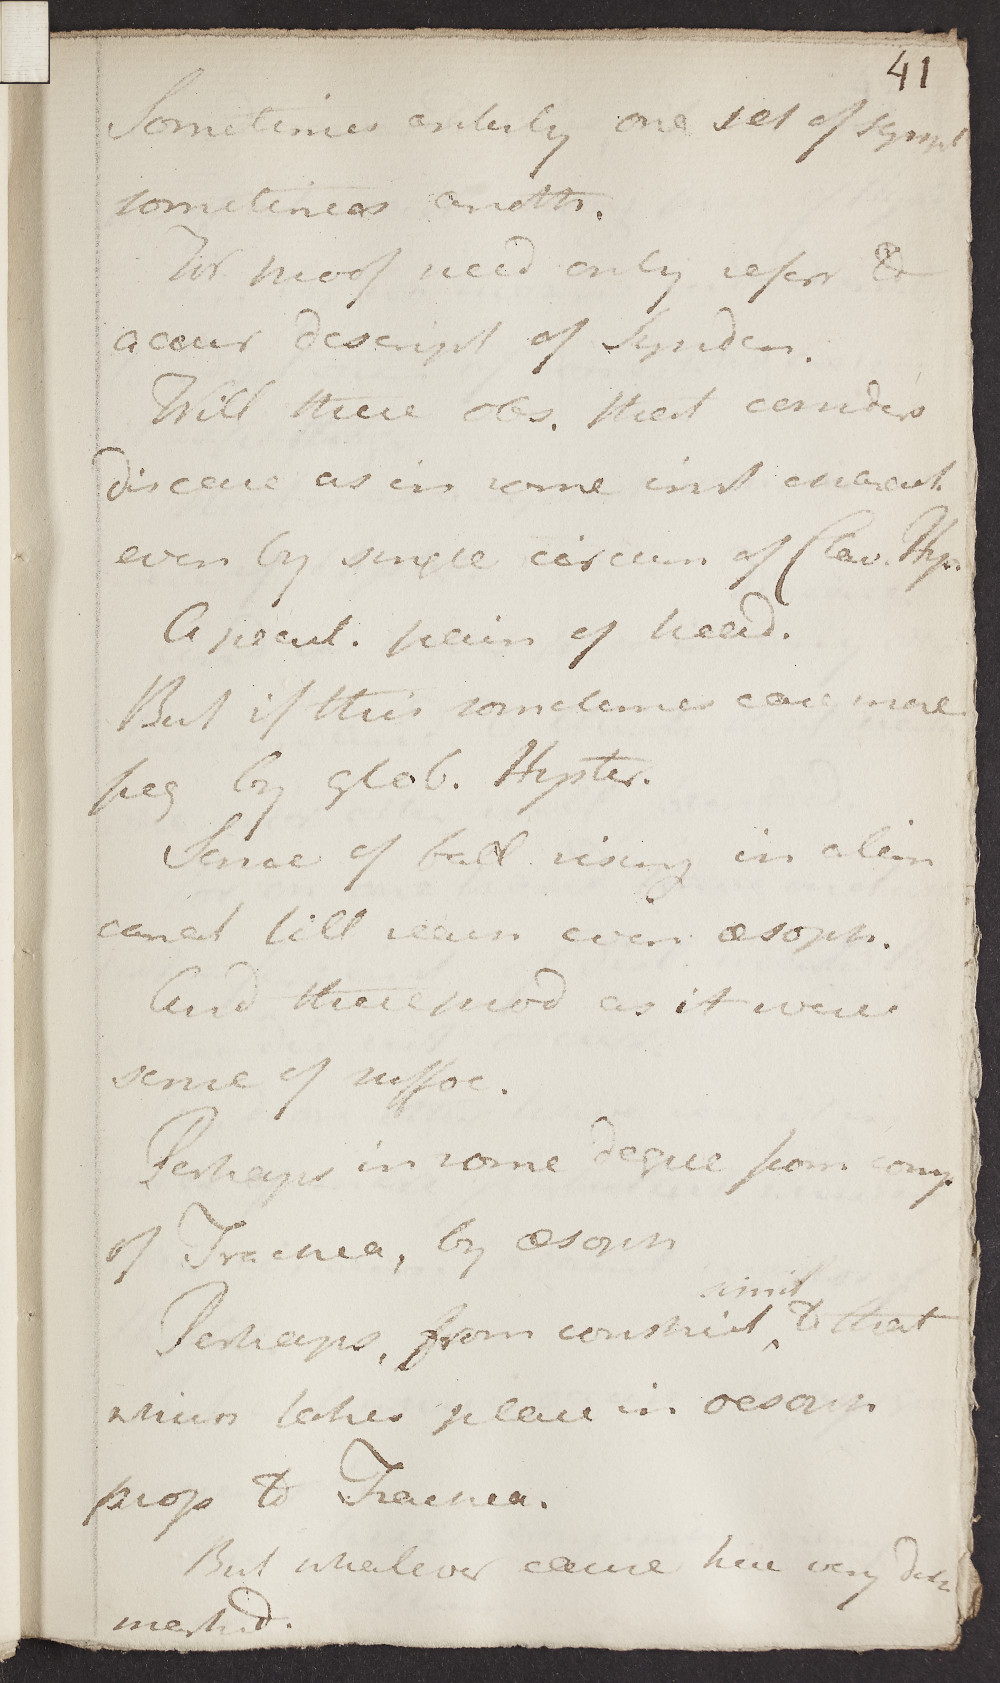 41
Sometimes entirely one set of sympt
sometimes anoth.
For proof need only refer to
accur descript of Synden.
Will there obs. that considers
disease as in some inst charact.
even by single circum of Clav. Hyst.
A pecul. pain of head.
But if this sometimes case more
freq by glob. Hyster.
Sense of ball rising in alim
canal till reach even œsoph.
And there prod as it were
sense of suffoc.
Perhaps in some degree from comp.
of Trachea, by œsoph
Perhaps, from constrict, simil to that
which takes place in oesoph
prop to Trachea.
But whatever cause here very dist
marked.